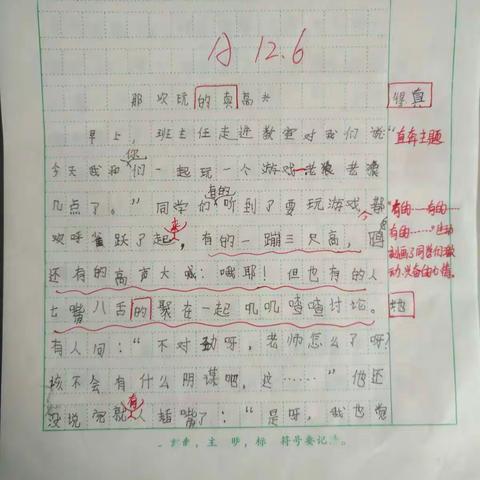 A 12.6
那次玩的真高兴
得 真
早上,班主任走进教室对我们说
"直奔主题
你
今天我和们一起玩一个游戏—老狼老狼
几点了。"同学们听到了要玩游戏都
有的
欢呼雀跃了起,有的一蹦三尺高,
来
"有的……有的…
有的……"生动
刻画了同学们激
动、兴奋的心情。
还有的高声大喊:哦耶!但也有的人
七嘴八舌的聚在一起叽叽喳喳讨论。
地
有人问:"不对劲呀,老师怎么了呀?
该不会有什么阴谋吧,这……"他还
没说完就人插嘴了:"是呀,我也觉
有
主 标 符号要记